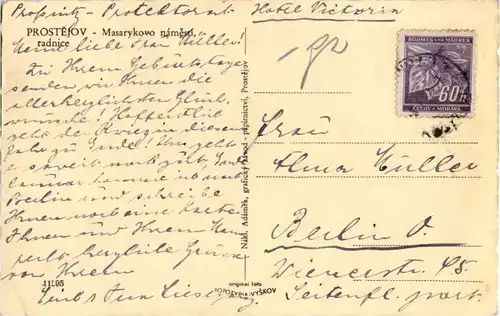 Proßnitz - Protektorat Hotel Victoria
PROSTĚJOV - Masarykovo náměstí,
radnice
Meine liebe Frau Müller!
Zu Ihrem Geburtstage
senden wir Ihnen die
allerherzlichsten Glück-
wünsche! Hoffentlich
geht der Krieg in diesem
Jahr zu Ende! Uns geht
es soweit noch gut.
Berlin und schreibe
Ihnen noch eine Karte.
Ihnen und Ihrem
herzliche Grüsse
von Ihrem
11595
Nákl. Adámek, grafický závod - papírnictví, Prostějov
original foto
FOTOTYPIA-VYŠKOV
BÖHMEN UND MÄHREN
60h
ČECHY A MORAVA
Frau
Alma Müller
Berlin O.
Wienerstr. 48.
Seitenfl. part.